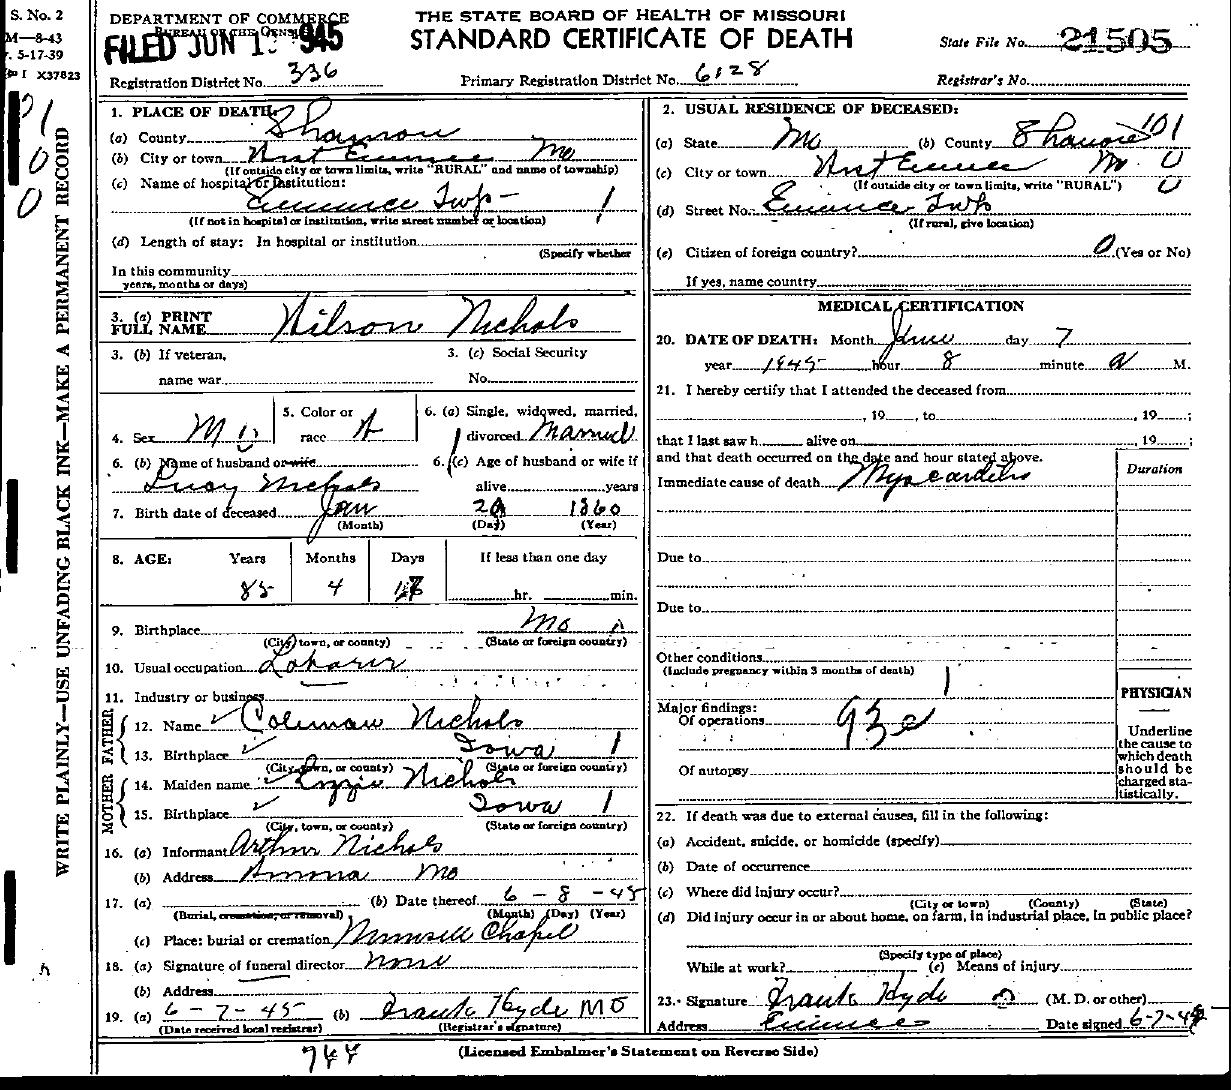 S. No. 2
M—8-43
5-17-39
I X37823
DEPARTMENT OF COMMERCE
BUREAU OF THE CENSUS
FILED JUN 1 1945
THE STATE BOARD OF HEALTH OF MISSOURI
STANDARD CERTIFICATE OF DEATH
State File No. 21505
Registration District No. 336
Primary Registration District No. 6128
Registrar's No.
WRITE PLAINLY—USE UNFADING BLACK INK—MAKE A PERMANENT RECORD
1. PLACE OF DEATH:
(a) County Shannon
(b) City or town West Eminence Mo
(If outside city or town limits, write "RURAL" and name of township)
(c) Name of hospital or institution:
Eminence Twp- 1
(If not in hospital or institution, write street number or location)
(d) Length of stay: In hospital or institution
(Specify whether
In this community
years, months or days)
3. (a) PRINT
FULL NAME Wilson Nichols
3. (b) If veteran,
name war
3. (c) Social Security
No.
4. Sex M
5. Color or
race
6. (a) Single, widowed, married,
divorced Married
6. (b) Name of husband or wife
Lucy Nichols
6. (c) Age of husband or wife if
alive years
7. Birth date of deceased Jan 20 1860
(Month) (Day) (Year)
8. AGE: Years Months Days If less than one day
85 4 hr. min.
9. Birthplace Mo
(City, town, or county) (State or foreign country)
10. Usual occupation Laborer
11. Industry or business
FATHER
12. Name Coleman Nichols
13. Birthplace Iowa 1
(City, town, or county) (State or foreign country)
MOTHER
14. Maiden name Nichols
15. Birthplace Iowa 1
(City, town, or county) (State or foreign country)
16. (a) Informant Arthur Nichols
(b) Address Mo
17. (a) (b) Date thereof 6 - 8 - 45
(Burial, cremation, or removal) (Month) (Day) (Year)
(c) Place: burial or cremation Chapel
18. (a) Signature of funeral director None
(b) Address
19. (a) 6 - 7 - 45 (b) Frank Hyde MD
(Date received local registrar) (Registrar's signature)
2. USUAL RESIDENCE OF DECEASED:
(a) State Mo (b) County Shannon 101
(c) City or town West Eminence Mo. 0
(If outside city or town limits, write "RURAL")
(d) Street No. Eminence Twp
(If rural, give location)
(e) Citizen of foreign country? 0 (Yes or No)
If yes, name country
MEDICAL CERTIFICATION
20. DATE OF DEATH: Month June day 7
year 1945 hour 8 minute a M.
21. I hereby certify that I attended the deceased from
, 19 , to , 19 ;
that I last saw h alive on , 19 ;
and that death occurred on the date and hour stated above.
Duration
Immediate cause of death Myocarditis
Due to
Due to
Other conditions
(Include pregnancy within 3 months of death)
PHYSICIAN
Underline
the cause to
which death
should be
charged sta-
tistically.
Major findings:
Of operations 93c
Of autopsy
22. If death was due to external causes, fill in the following:
(a) Accident, suicide, or homicide (specify)
(b) Date of occurrence
(c) Where did injury occur?
(City or town) (County) (State)
(d) Did injury occur in or about home, on farm, in industrial place, in public place?
(Specify type of place)
While at work? (e) Means of injury
23. Signature Frank Hyde (M. D. or other)
Address Eminence Date signed 6-7-45
744
(Licensed Embalmer's Statement on Reverse Side)